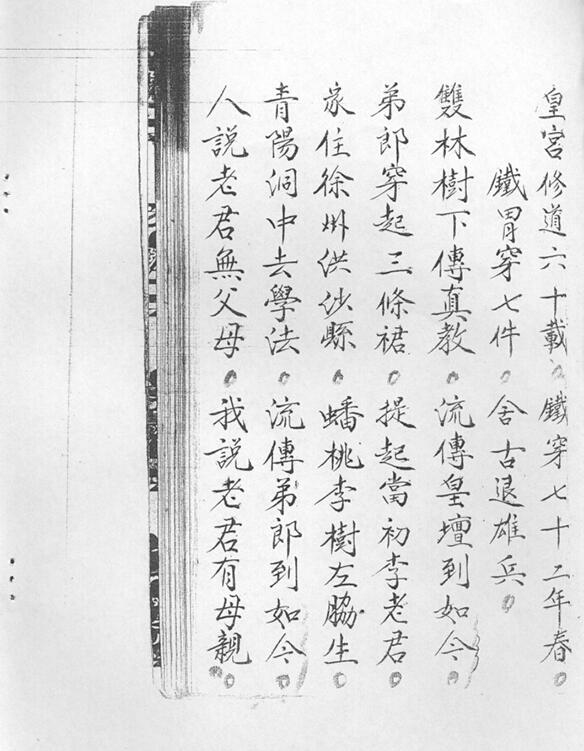 皇宮修道六十載。鐵穿七十二年春。
鐵胃穿七件。舍古退雄兵。
雙林樹下傳真教。流傳皇壇到如今。
弟郎穿起三條裙。提起當初李老君。
家住徐州洪沙縣。蟠桃李樹左脇生。
青陽洞中去學法。流傳弟郎到如今。
人說老君無父母。我說老君有母親。